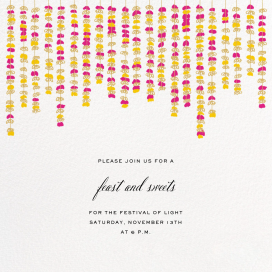 PLEASE JOIN US FOR A
feast and sweets
FOR THE FESTIVAL OF LIGHT
SATURDAY, NOVEMBER 13TH
AT 6 P.M.